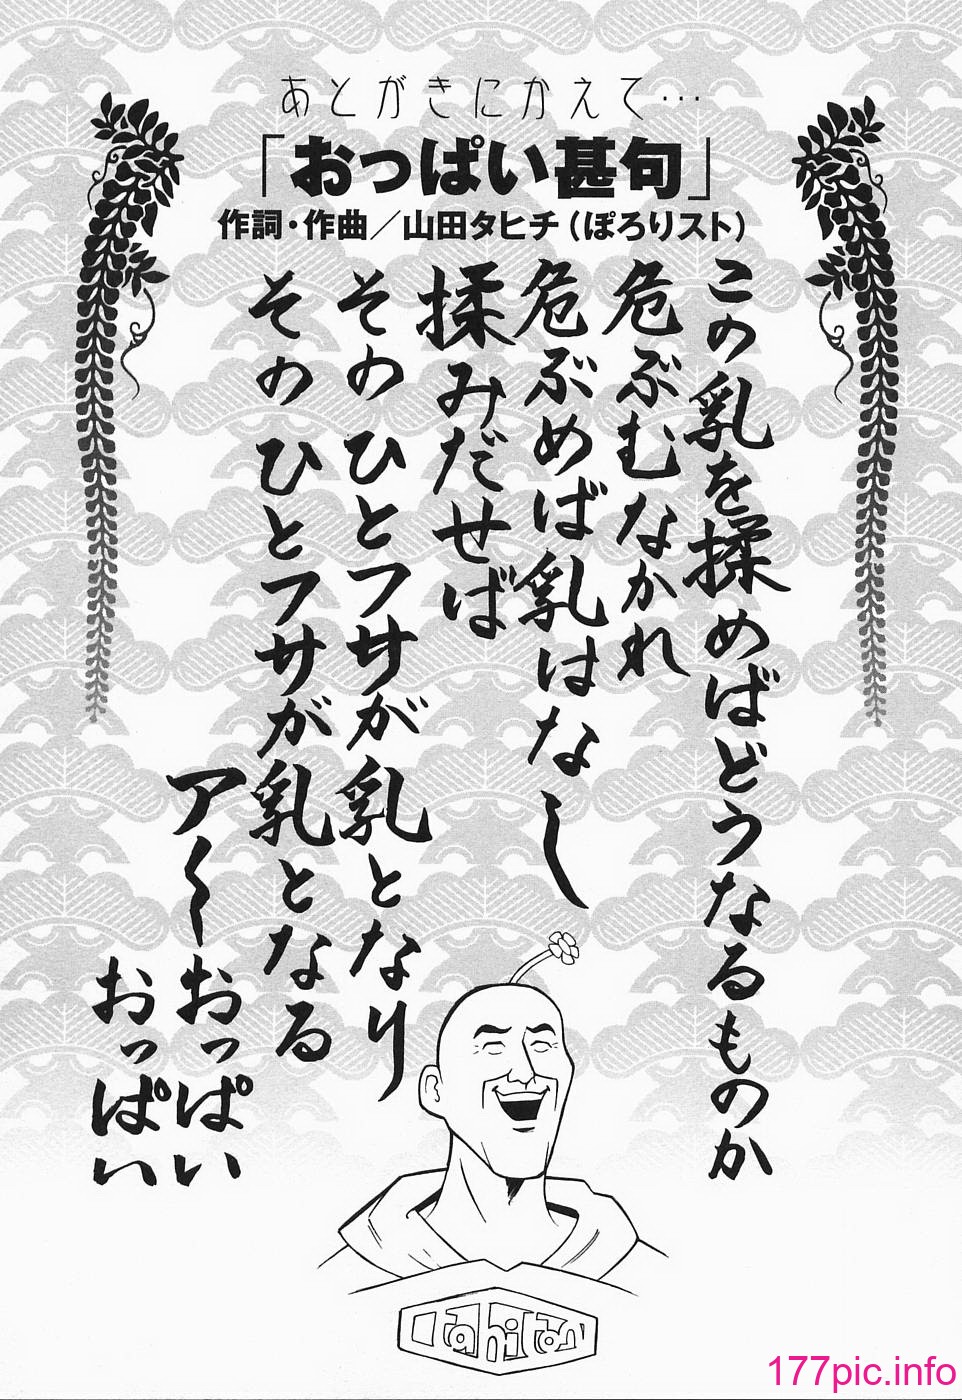 あとがきにかえて…
「おっぱい甚句」
作詞・作曲／山田タヒチ（ぽろりスト）
この乳を揉めばどうなるものか
危ぶむなかれ
危ぶめば乳はなし
揉みだせば
そのひとフサが乳となり
そのひとフサが乳となる
ア〜おっぱい
おっぱい
tahiton
177pic.info